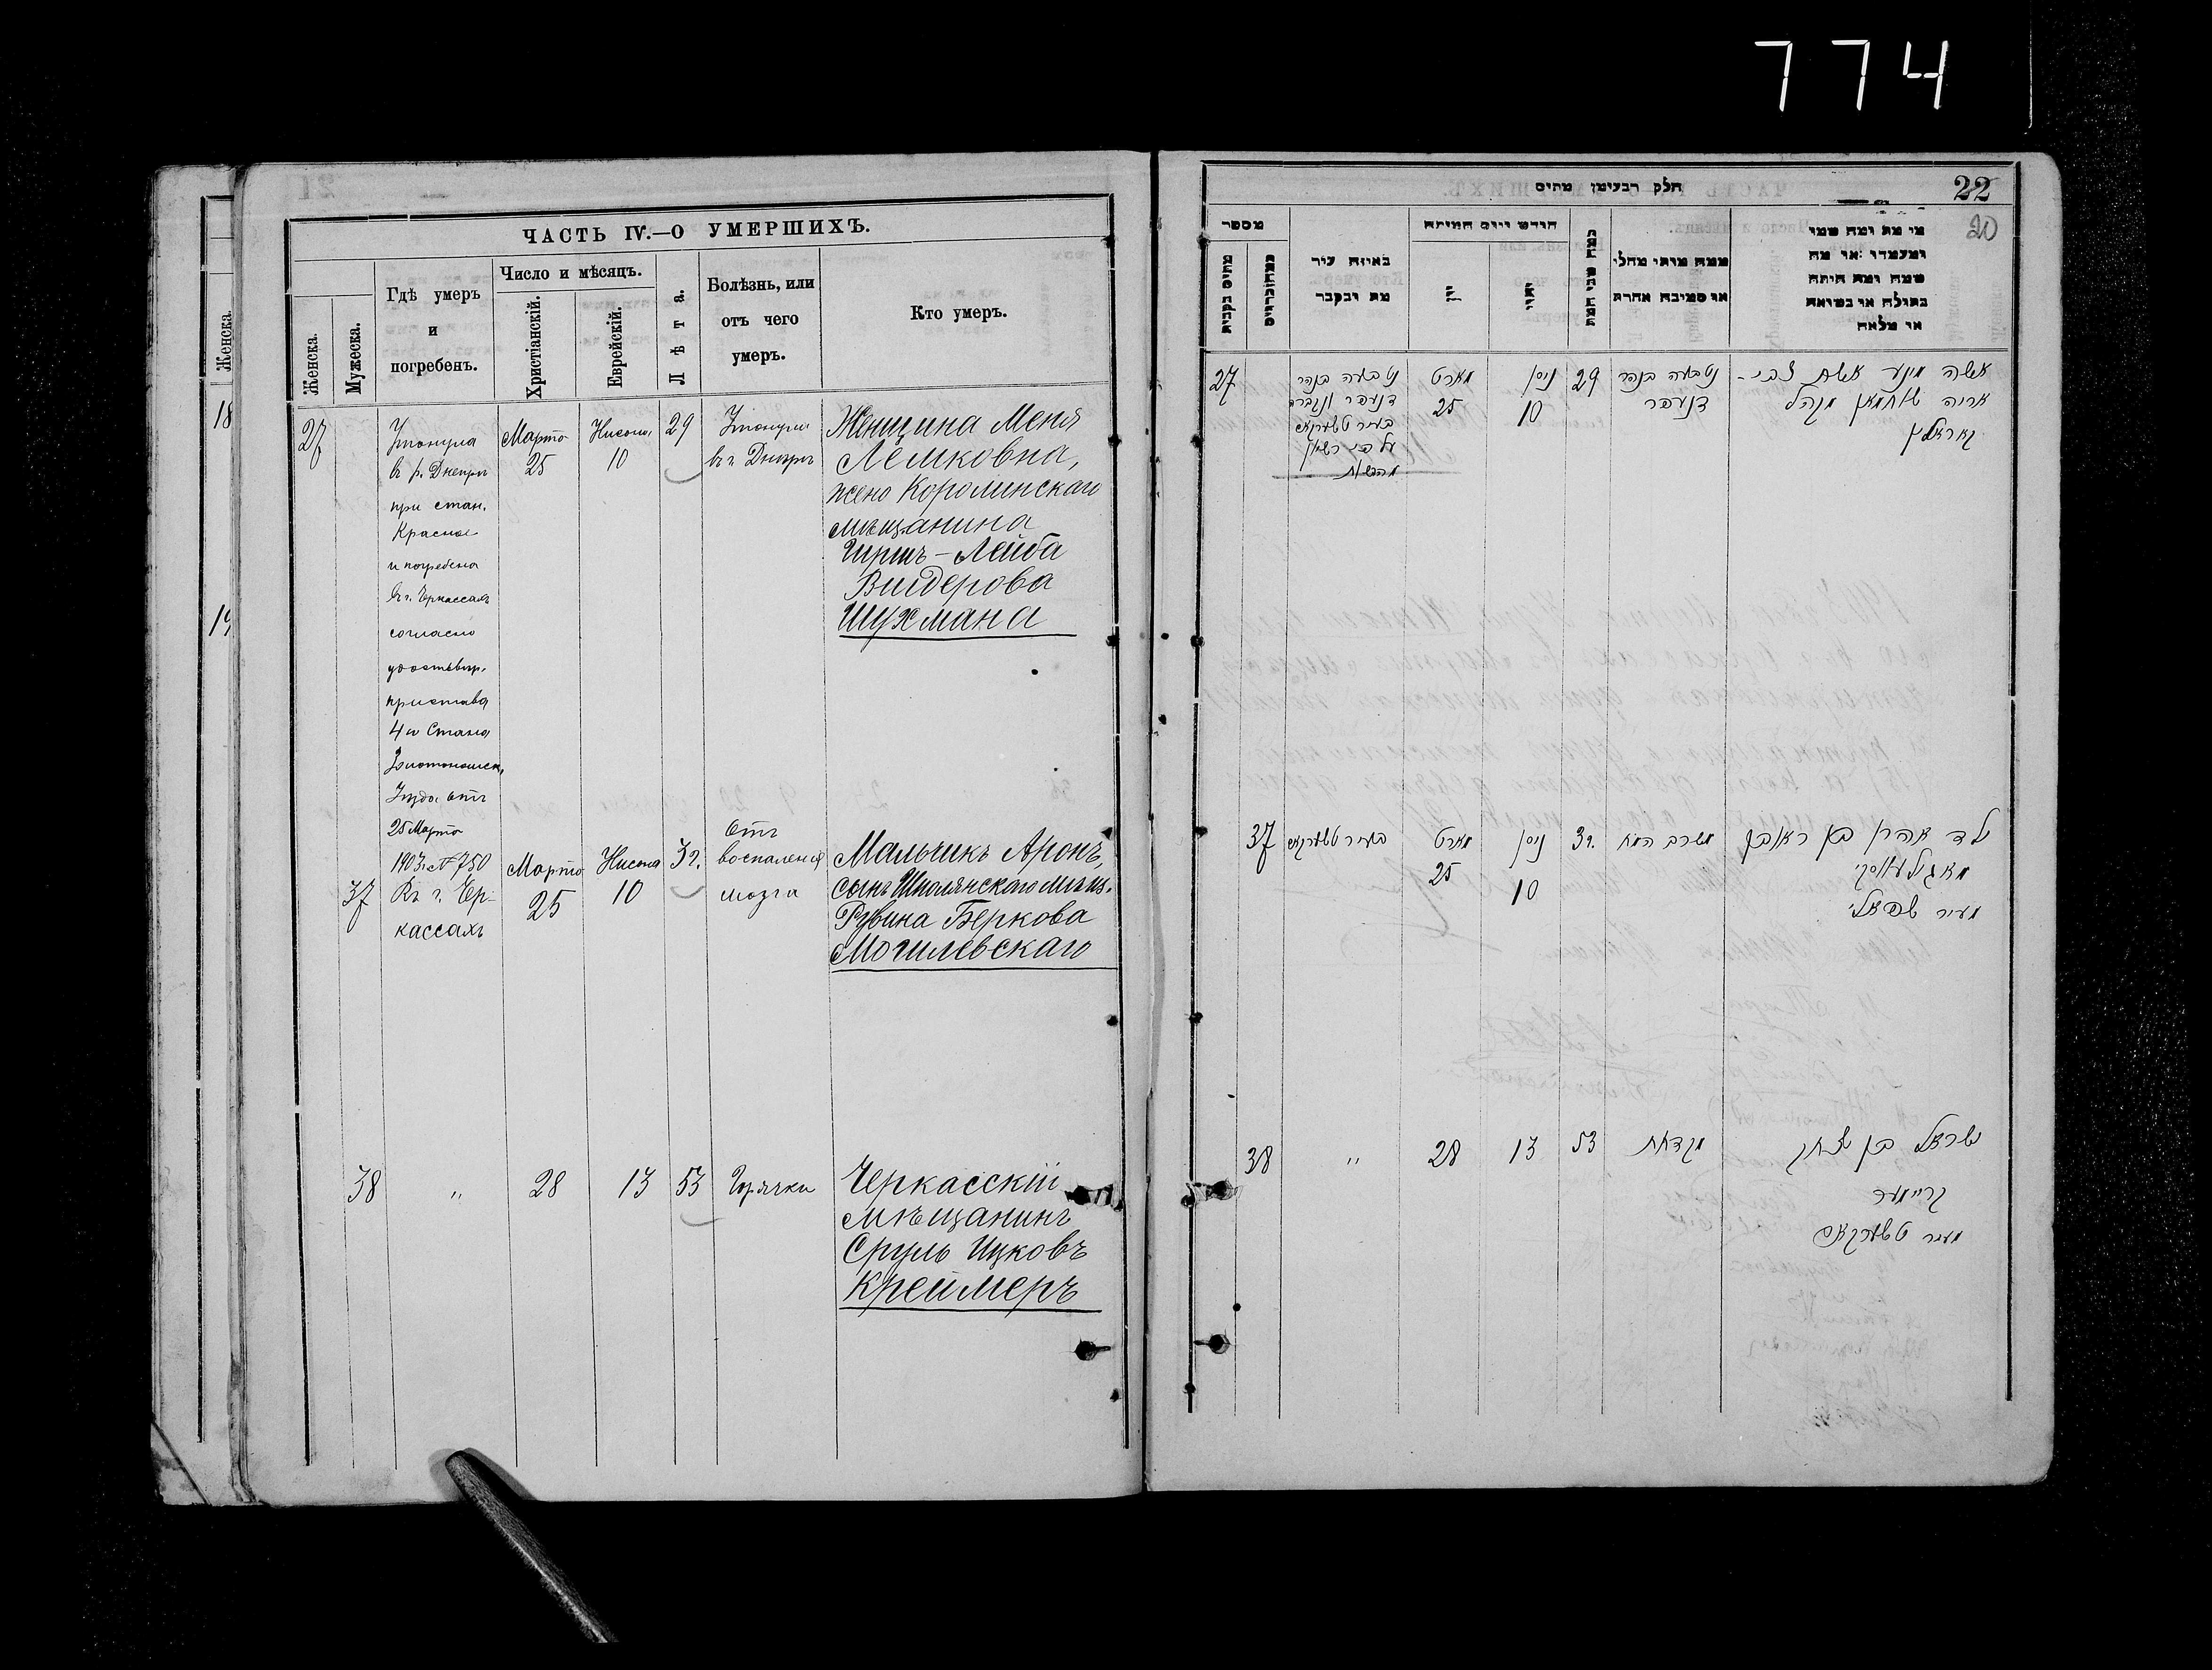 774
ЧАСТЬ IV.—О УМЕРШИХЪ.
Женска.
Мужеска.
Гдѣ умеръ
и
погребенъ.
Число и мѣсяцъ.
Христіанскій.
Еврейскій.
Лѣта.
Болѣзнь, или
отъ чего
умеръ.
Кто умеръ.
Женска.
18
19
27
Утонула
въ р. Днепръ
при стан.
Красное
и погребена
въ г. Черкассахъ
согласно
удостовѣр.
пристава
4го Стана
Золотоношск.
Уѣзда отъ
25 Марта
1903 г. № 750
Марта
25
Нисона
10
29
Утонула
въ р. Днѣпръ
Женщина Меня
Лемковна,
жена
мѣщанина
Гиршъ-Лейба
Вигдерова
Шухмана
37
Въ г. Чер-
кассахъ
Марта
25
Нисона
10
3 г.
отъ
воспаленія
мозга
Мальчикъ Аронъ,
сынъ Шполянскаго мѣщ.
Рувина Беркова
Могилевскаго
38
"
28
13
53
Горячки
Черкасскій
мѣщанинъ
Сруль Ицковъ
Креймеръ
22
20
חלק רבעימן מתים
מספר
מתים נקבות
באיזה עיר
מת ונקבר
חודש ויום המיתה
ממה מותו מחלי
או סמיבה אחרת
מי מת ומה שמו
ומעמדו או מה
שמה ומה היתה
בתולה או נשואה
או מלאה
27
נטבעה בנהר
דנעפר ונקברה
בעיר טשערקאס
על פי רשיון
מארט
25
ניסן
10
29
נטבעה בנהר
דנעפר
אשה מינע אשת צבי-
אריה שוחמאן מקהל
37
בעיר טשערקאס
מארט
25
ניסן
10
3 ג.
ילד אהרן בן ראובן
מאגילעווסקי
מעיר שפאלי
38
"
28
13
53
מקדחת
ישראל בן יצחק
קריימער
מעיר טשערקאס